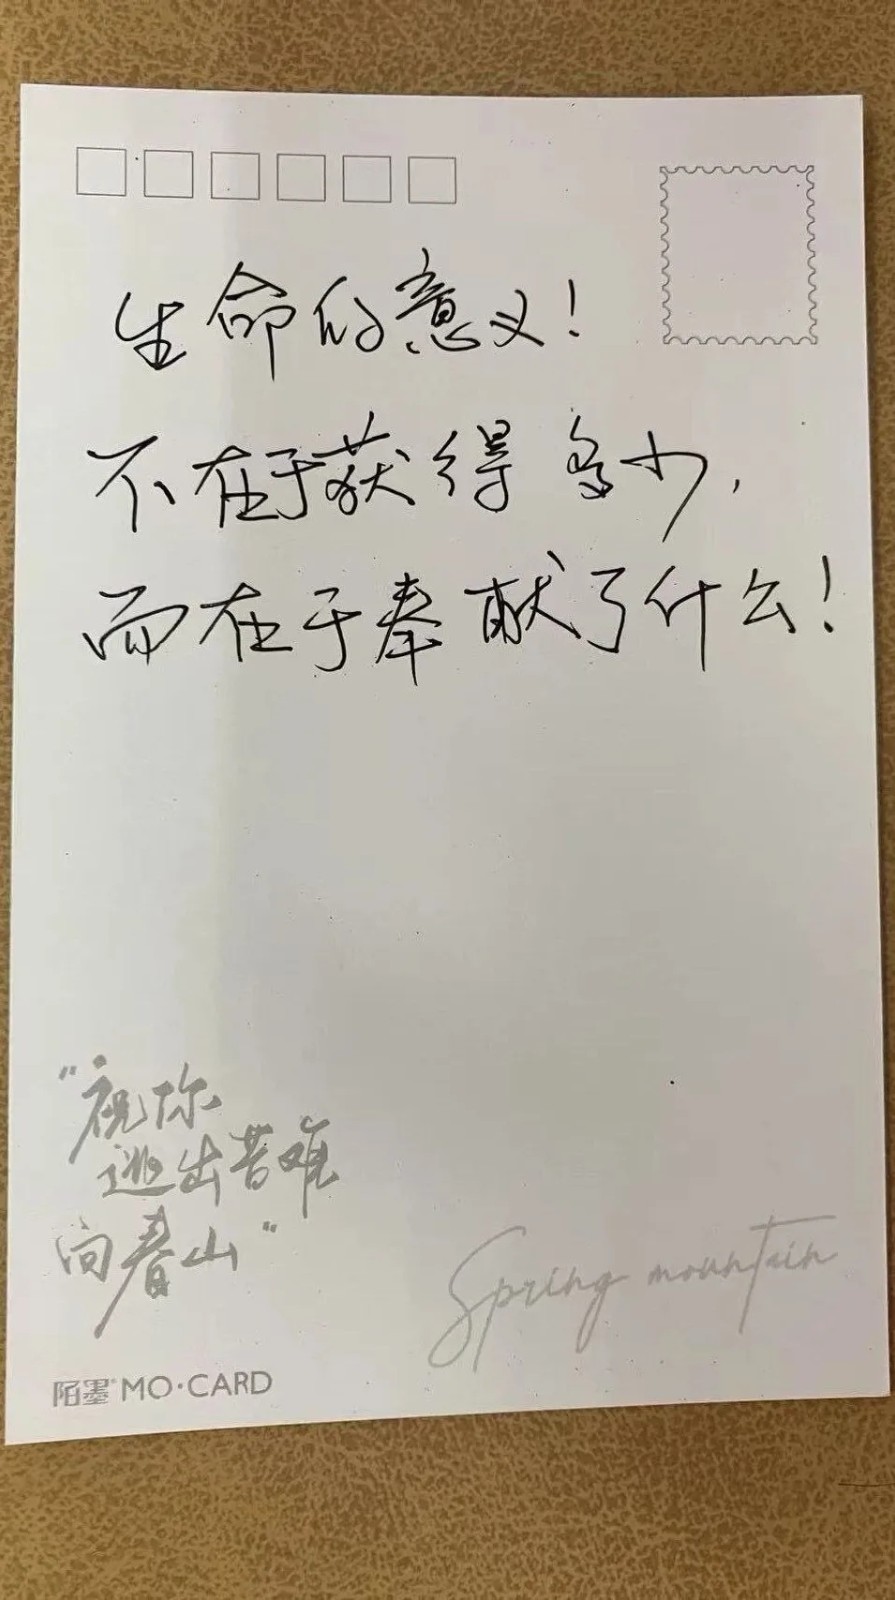 生命的意义!
不在于获得多少,
而在于奉献了什么!
"祝你
逃出苦难
向春山"
Spring mountain
陌墨 MO·CARD